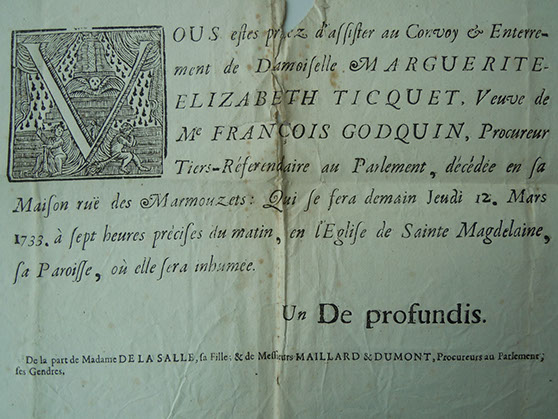 VOUS estes priez d'assister au Convoy & Enterre-
ment de Damoiselle MARGUERITE-
ELIZABETH TICQUET, Veuve de
Mᵉ FRANÇOIS GODQUIN, Procureur
Tiers-Référendaire au Parlement, décédée en sa
Maison ruë des Marmouzets: Qui se fera demain Jeudi 12. Mars
1733. à sept heures précises du matin, en l'Eglise de Sainte Magdelaine,
sa Paroisse, où elle sera inhumée.
Un De profundis.
De la part de Madame DE LA SALLE, sa Fille; & de Messieurs MAILLARD & DUMONT, Procureurs au Parlement,
ses Gendres.